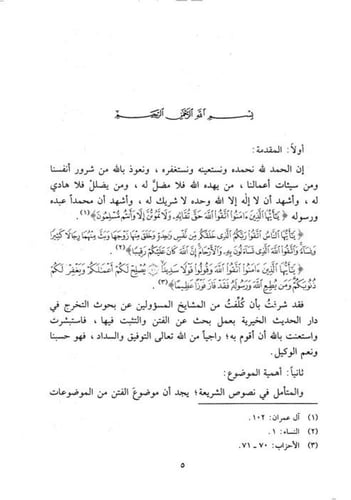 بسم الله الرحمن الرحيم
أولاً: المقدمة:
إن الحمد لله نحمده ونستعينه ونستغفره ، ونعوذ بالله من شرور أنفسنا
ومن سيئات أعمالنا ، من يهده الله فلا مضلّ له ، ومن يضللْ فلا هادي
له ، وأشهد أن لا إلٰه إلا الله وحده لا شريك له ، وأشهد أن محمداً عبده
ورسوله ﴿ يَٰٓأَيُّهَا ٱلَّذِينَ ءَامَنُوا۟ ٱتَّقُوا۟ ٱللَّهَ حَقَّ تُقَاتِهِۦ وَلَا تَمُوتُنَّ إِلَّا وَأَنتُم مُّسْلِمُونَ ﴾(١) .
﴿ يَٰٓأَيُّهَا ٱلنَّاسُ ٱتَّقُوا۟ رَبَّكُمُ ٱلَّذِى خَلَقَكُم مِّن نَّفْسٍ وَٰحِدَةٍ وَخَلَقَ مِنْهَا زَوْجَهَا وَبَثَّ مِنْهُمَا رِجَالًا كَثِيرًا
وَنِسَآءً وَٱتَّقُوا۟ ٱللَّهَ ٱلَّذِى تَسَآءَلُونَ بِهِۦ وَٱلْأَرْحَامَ إِنَّ ٱللَّهَ كَانَ عَلَيْكُمْ رَقِيبًا ﴾(٢) .
﴿ يَٰٓأَيُّهَا ٱلَّذِينَ ءَامَنُوا۟ ٱتَّقُوا۟ ٱللَّهَ وَقُولُوا۟ قَوْلًا سَدِيدًا ۝ يُصْلِحْ لَكُمْ أَعْمَٰلَكُمْ وَيَغْفِرْ لَكُمْ
ذُنُوبَكُمْ وَمَن يُطِعِ ٱللَّهَ وَرَسُولَهُۥ فَقَدْ فَازَ فَوْزًا عَظِيمًا ﴾(٣) .
فقد شرفتُ بأن كُلّفتُ من المشايخ المسؤولين عن بحوث التخرج في
دار الحديث الخيرية بعمل بحث عن الفتن والتثبت فيها ، فاستبشرت
واستعنت بالله أن أقوم به؛ راجياً من الله تعالى التوفيق والسداد، فهو حسبنا
ونعم الوكيل.
ثانياً: أهمية الموضوع:
والمتأمل في نصوص الشريعة؛ يجد أن موضوعَ الفتن من الموضوعات
(١) آل عمران: ١٠٢ .
(٢) النساء: ١ .
(٣) الأحزاب: ٧٠ - ٧١ .
٥